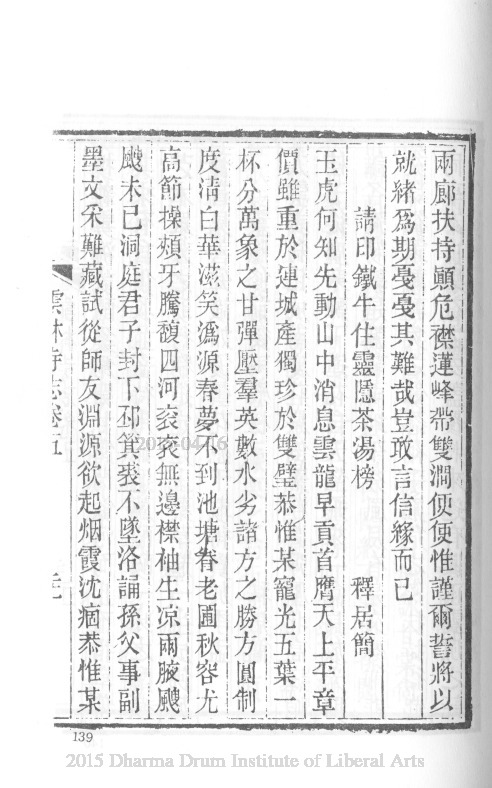 兩廊扶持顚危襟蓮峰帶雙澗便便惟謹爾誓將以
就緒爲期憂憂其難哉豈敢言信緣而已
請印鐵牛住靈隱茶湯榜　釋居簡
玉虎何知先動山中消息雲龍早貢首膺天上平章
價雖重於連城產獨珍於雙璧恭惟某寵光五葉一
杯分萬象之甘彈壓羣英數水劣諸方之勝方圓制
度淸白華滋笑潙源春夢不到池塘眷老圃秋容尤
高節操頰牙騰馥四河衮衮無邊襟袖生凉兩腋飕
飕未已洞庭君子封下邳箕裘不墜洛誦孫父事副
墨文采難藏試從師友淵源欲起烟霞沈痼恭惟某
雲林寺志卷五
139
2015 Dharma Drum Institute of Liberal Arts